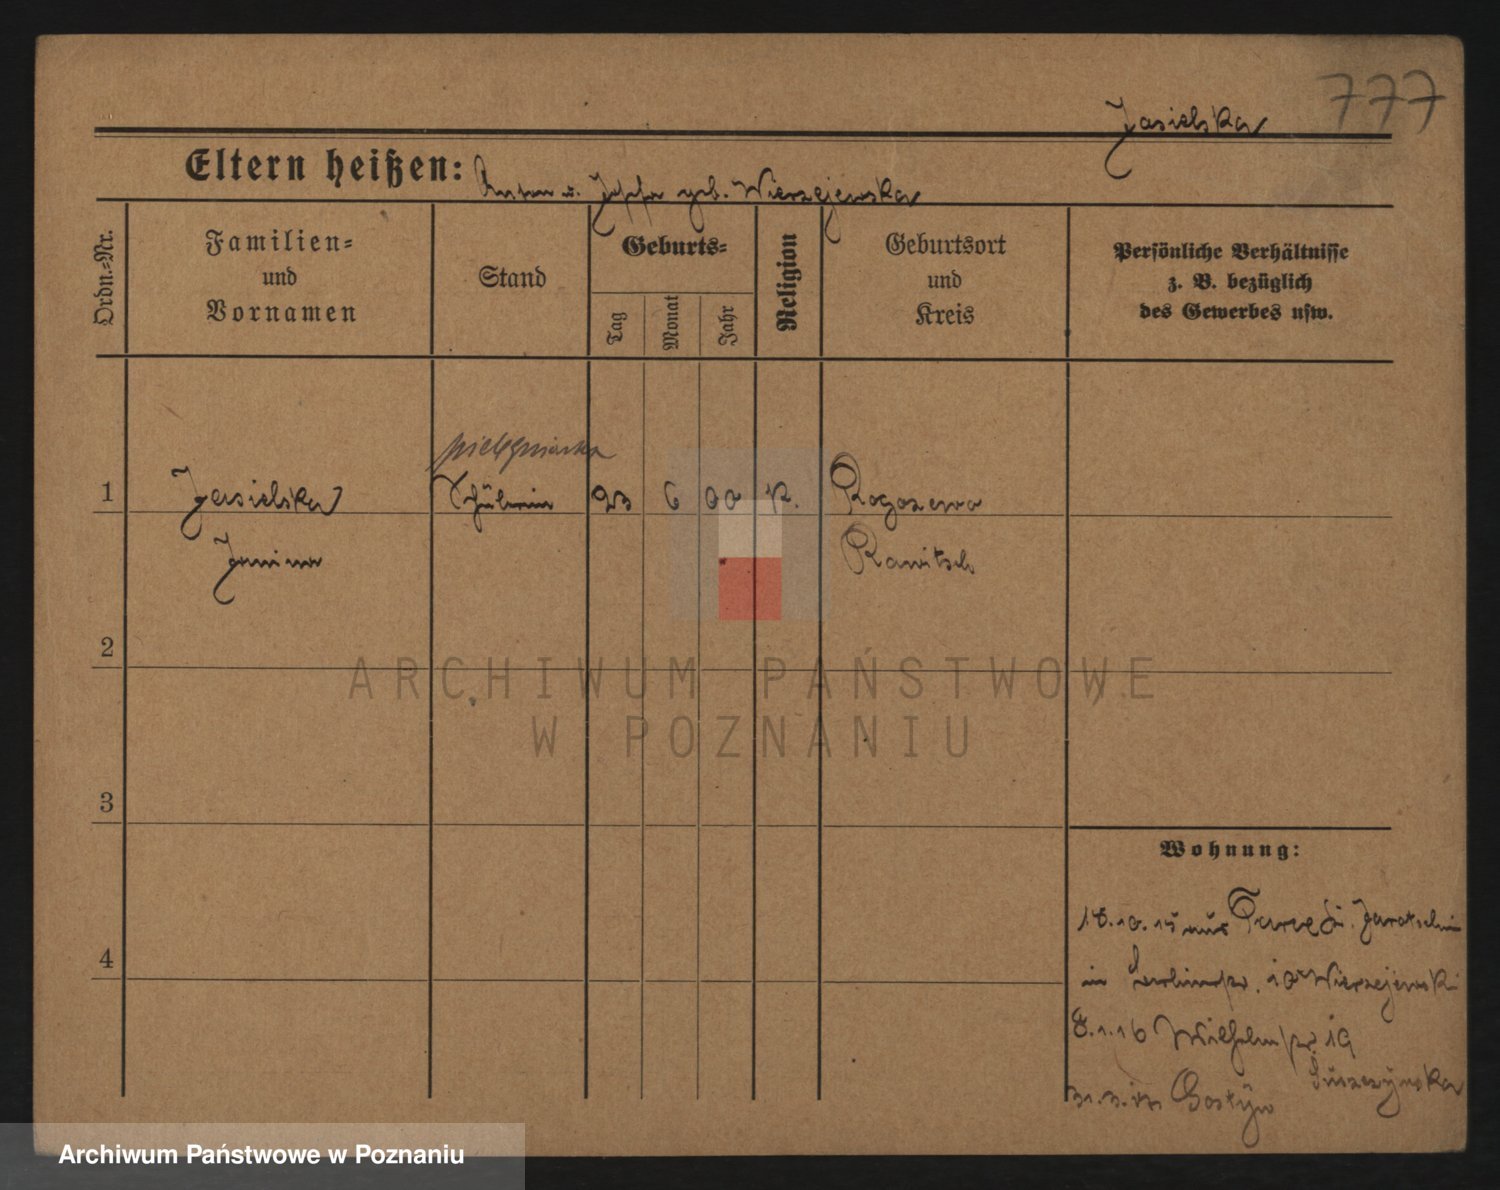 777
Jasielska
Eltern heißen: Anton u. Zofia geb. Wierzejewska
Ordn.=Nr.
Familien=
und
Vornamen
Stand
Geburts=
Tag
Monat
Jahr
Religion
Geburtsort
und
Kreis
Persönliche Verhältnisse
z. B. bezüglich
des Gewerbes usw.
pielęgniarka
1 Jasielska Schülerin 23 6 00 K. Rogozewo
Janina Rawitsch
2
3
4
Wohnung:
18.10.15 aus Jarotschin
in 10 Wierzejewski
8.1.16 Wilhelmstr. 19
Suszczynska
Gostyn
ARCHIWUM PAŃSTWOWE
W POZNANIU
Archiwum Państwowe w Poznaniu